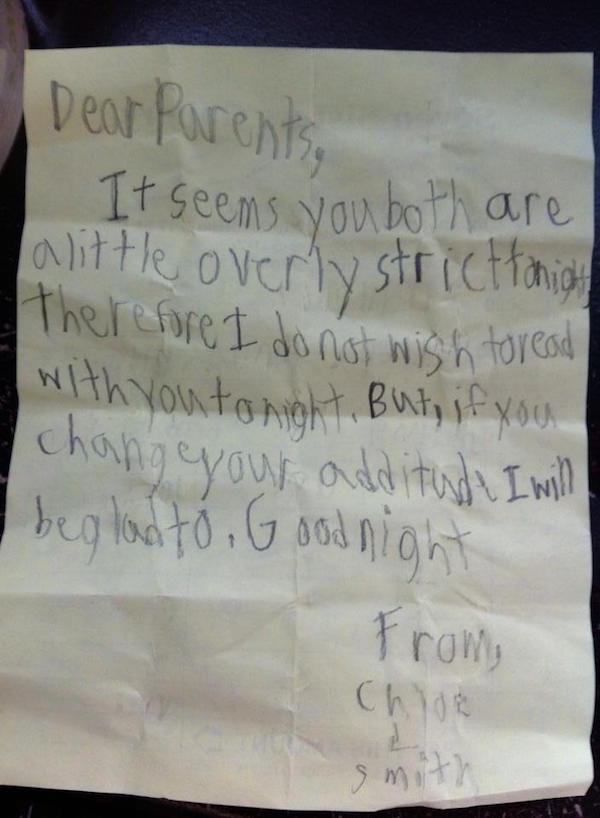 Dear Parents,
It seems you both are
a little overly strict tonight,
therefore I do not wish to read
with you tonight. But, if you
change your additude I will
be glad to. Good night
From,
Chloe
L
smith